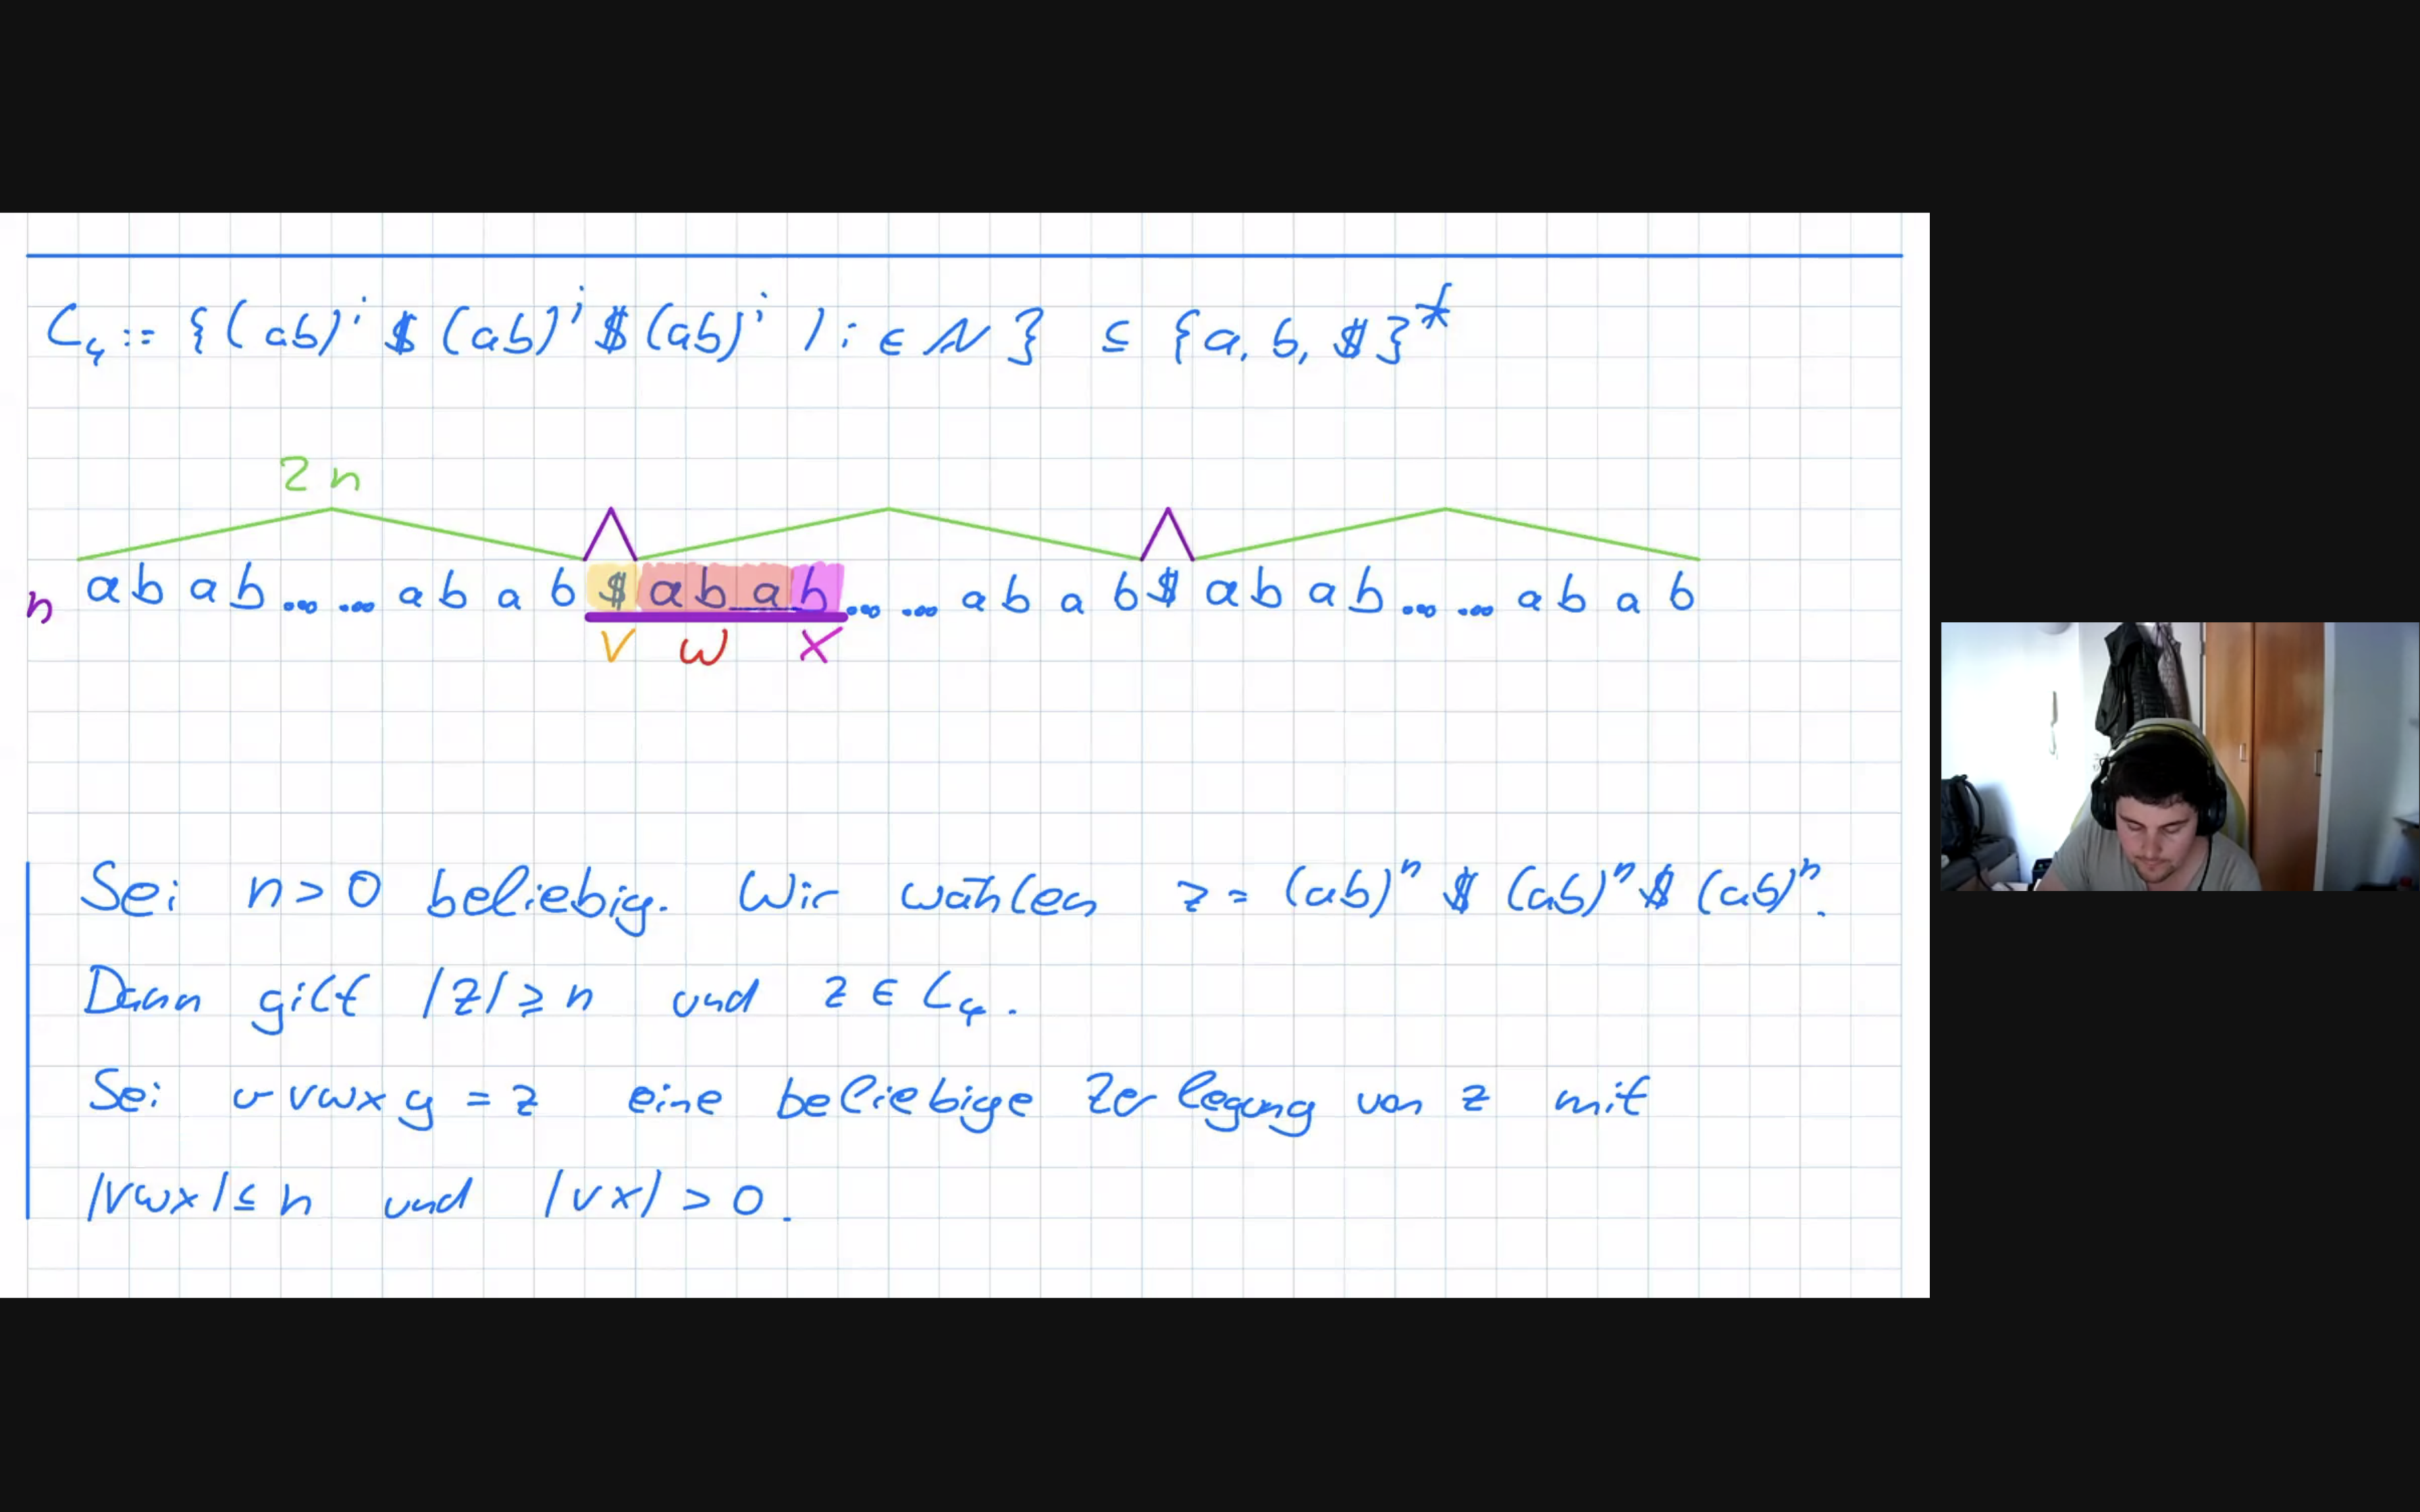 L₄ := {(ab)ⁱ $ (ab)ⁱ $ (ab)ⁱ | i ∈ ℕ} ⊆ {a, b, $}*
2n
n abab... ...abab$abab... ...abab$abab... ...abab
v w x
Sei n > 0 beliebig. Wir wählen z = (ab)ⁿ $ (ab)ⁿ $ (ab)ⁿ.
Dann gilt |z| ≥ n und z ∈ L₄.
Sei uvwxy = z eine beliebige Zerlegung von z mit
|vwx| ≤ n und |vx| > 0.